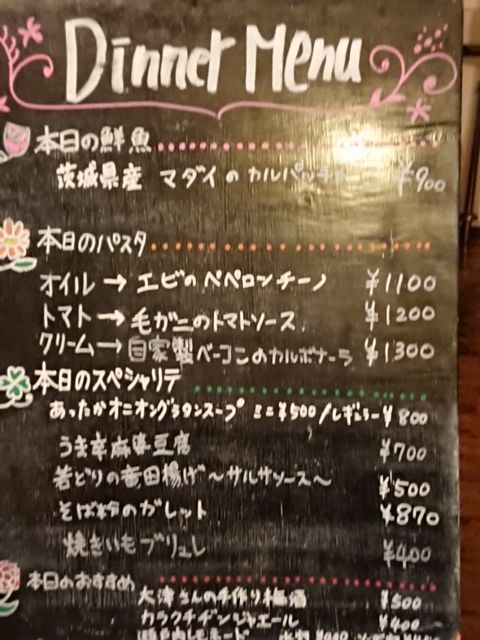 Dinner Menu
本日の鮮魚
茨城県産 マダイのカルパッチョ ¥900
本日のパスタ
オイル→エビのペペロンチーノ ¥1100
トマト→毛ガニのトマトソース ¥1200
クリーム→自家製ベーコンのカルボナーラ ¥1300
本日のスペシャリテ
あったかオニオングラタンスープ ミニ¥500/レギュラー¥800
うま辛麻婆豆腐 ¥700
若どりの竜田揚げ〜サルサソース〜 ¥500
そば粉のガレット ¥870
焼きいもブリュレ ¥400
本日のおすすめ
大津さんの手作り梅酒 ¥500
カラクチヂンジャエール ¥400